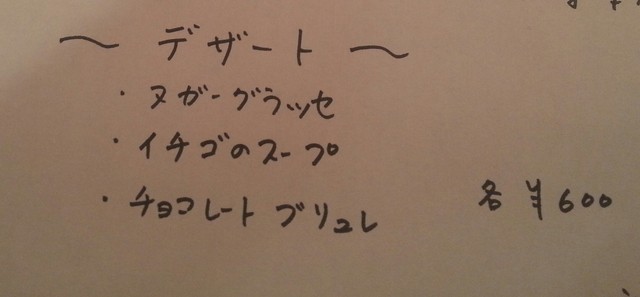 〜 デザート 〜
・ヌガーグラッセ
・イチゴのスープ
・チョコレート ブリュレ 各 ¥600